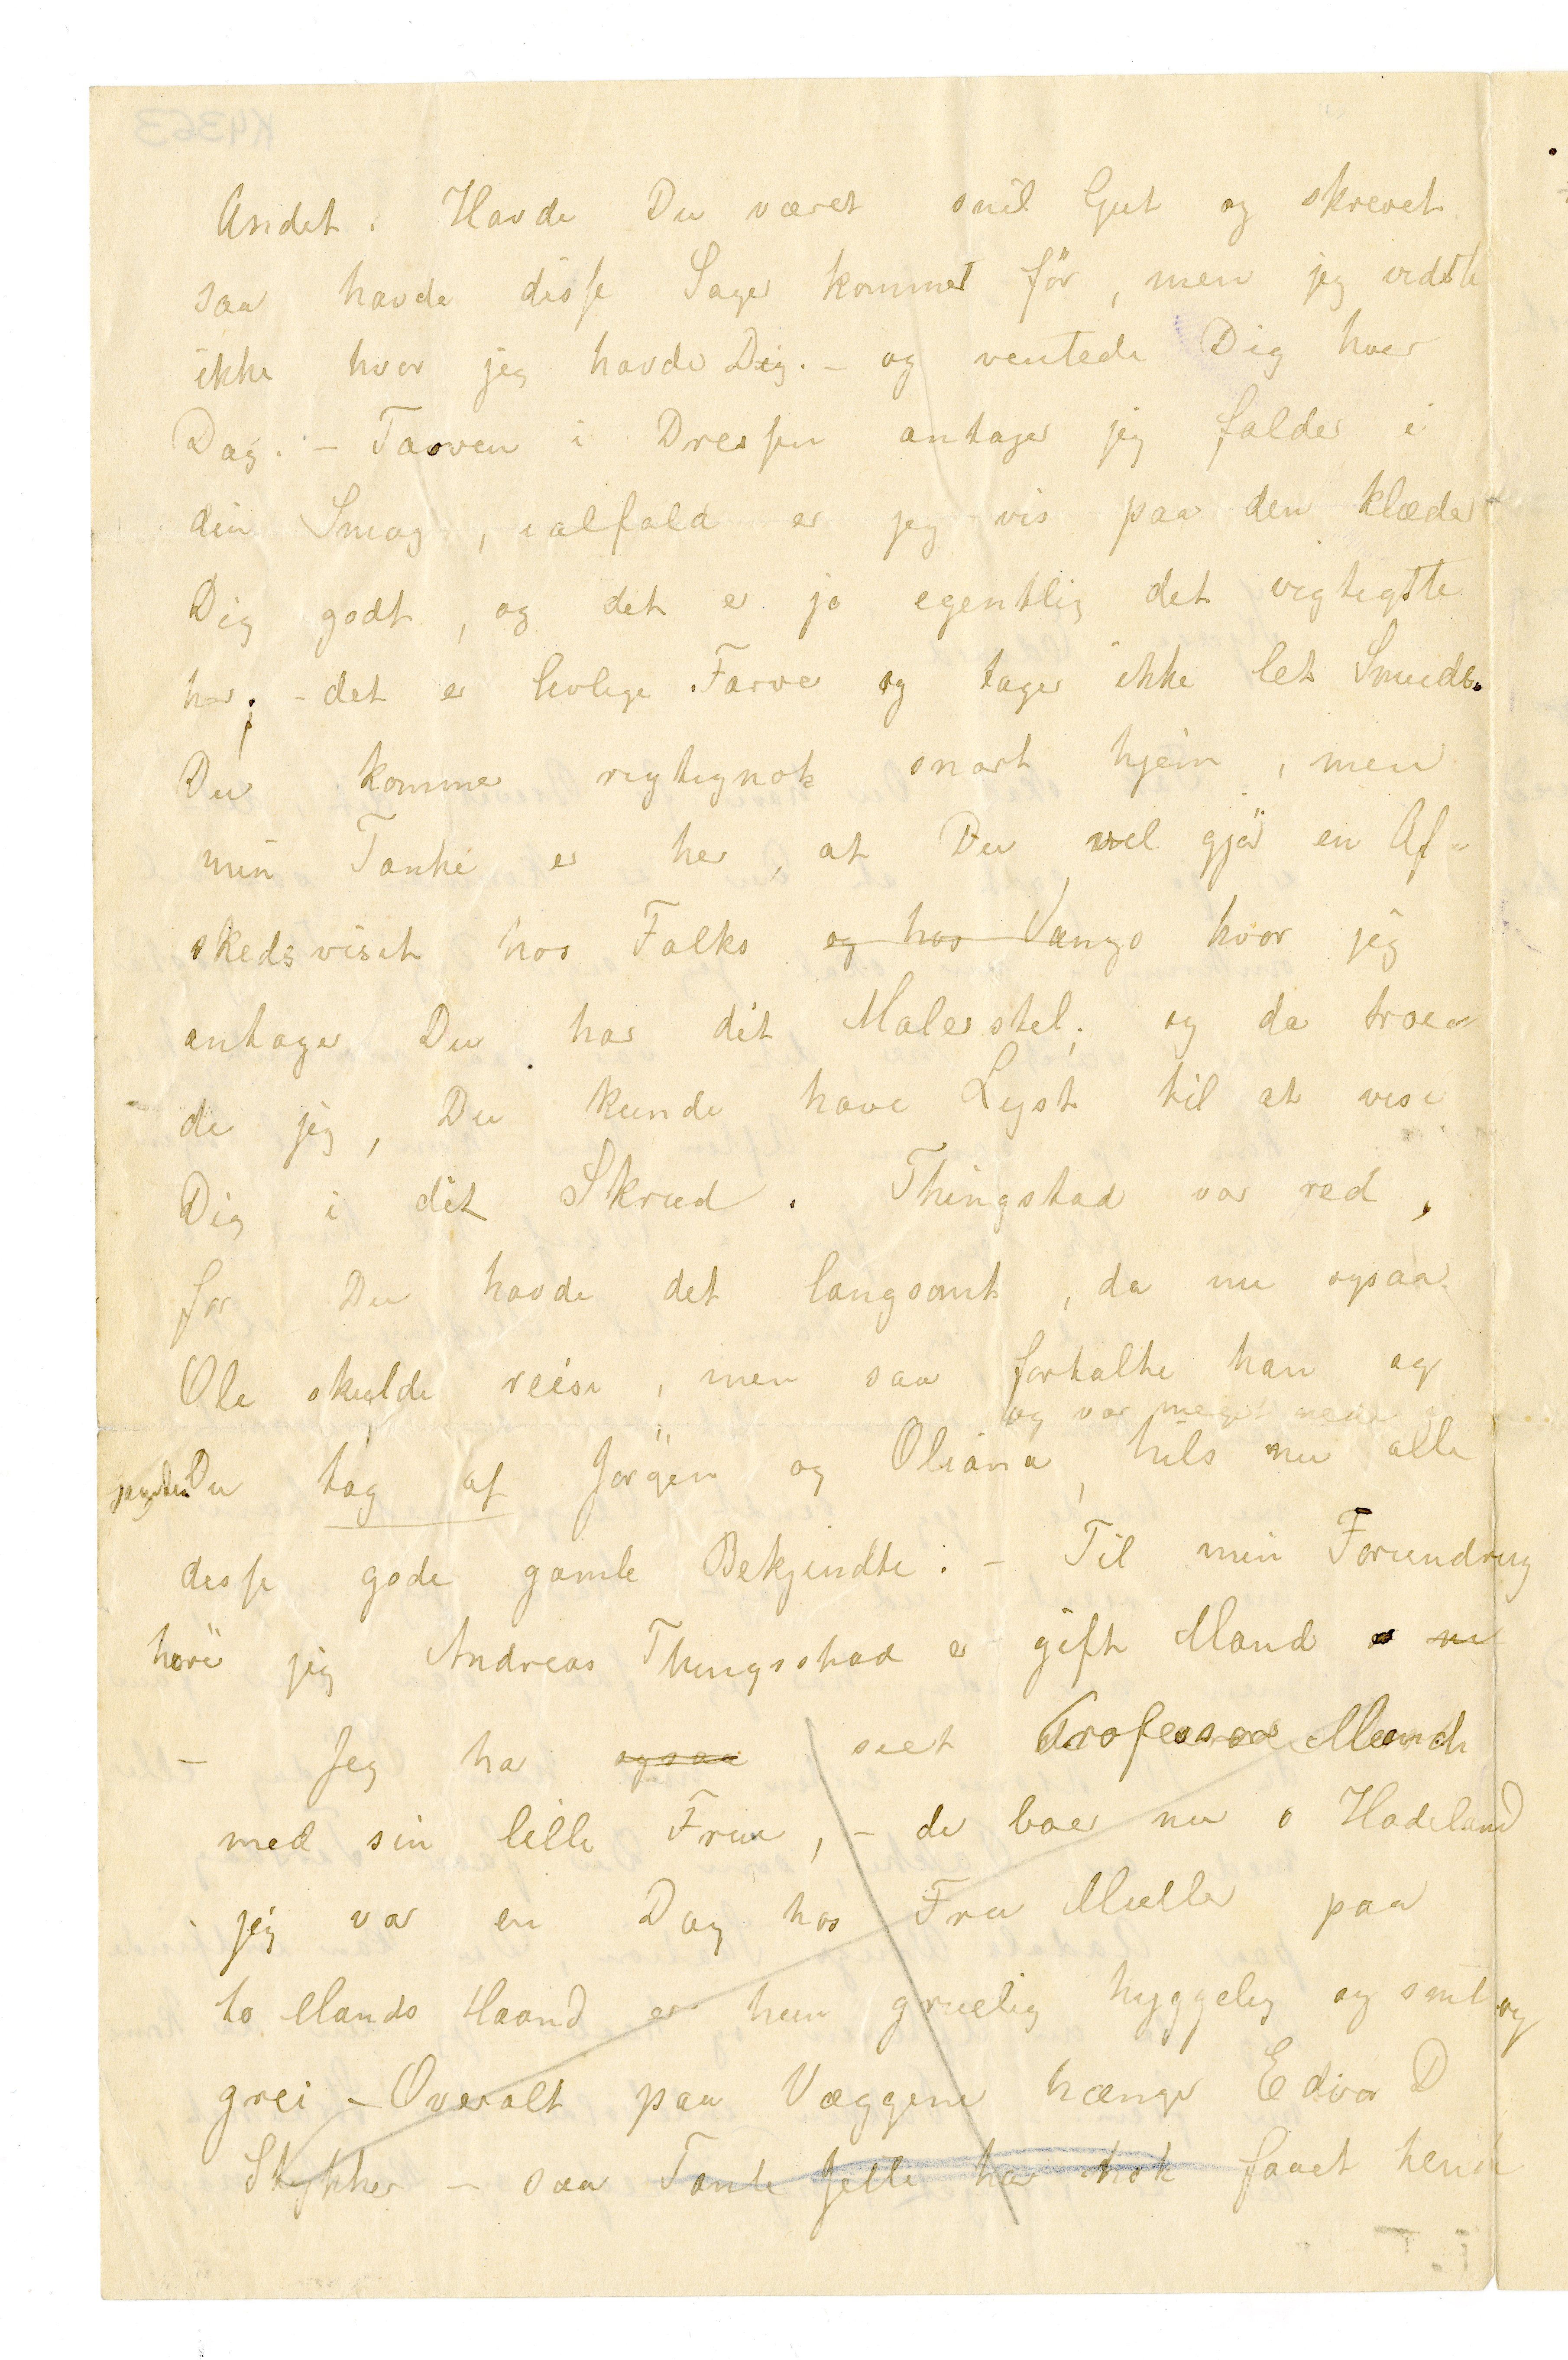 Andet. Havde Du været snil Gut og skrevet
saa havde disse Sager kommet för, men jeg vidste
ikke hvor jeg havde Dig. – og ventede Dig hver
Dag. – Farven i Dressen antager jeg falder i
din Smag, ialfald er jeg vis paa den klæder
Dig godt, og det er jo egentlig det vigtigste
her; – det er livlige Farver og tager ikke let Smuds.
Du kommer rigtignok snart hjem, men
min Tanke er her, at Du vel gjör en Af-
skedsvisit hos Falks og hos Vangs hvor jeg
antager Du har dit Malerstel; og da troe-
de jeg, Du kunde have Lyst til at vise
Dig i dit Skrud. Thingstad var red,
for Du havde det langsomt, da nu ogsaa
Ole skulde reise, men saa fortalte han og
og var meget
Du tog af Jörgen og Oliana, hils nu alle
disse gode gamle Bekjendte. – Til min Forundring
hörer jeg Andreas Thingsstad er gift Mand
– Jeg har ogsaa seet Professor Munch
med sin lille Frue, – de boer nu o Hadeland
jeg var en Dag hos Fru Müller paa
to Mands Haand er hun gruelig hyggelig og snil og
grei – Overalt paa Væggene hænger Edvar D
Stykker – saa Tante Jette har nok faaet hende